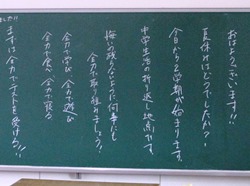 おはようございます!!
夏休みはどうでしたか?
今日から2学期が始まります。
中学生活の折り返し地点です。
悔いの残らないように何事にも
全力で取り組みましょう!
全力で学び 全力で遊び
全力で食い 全力で寝る
まずは全力でテストを受ける!!